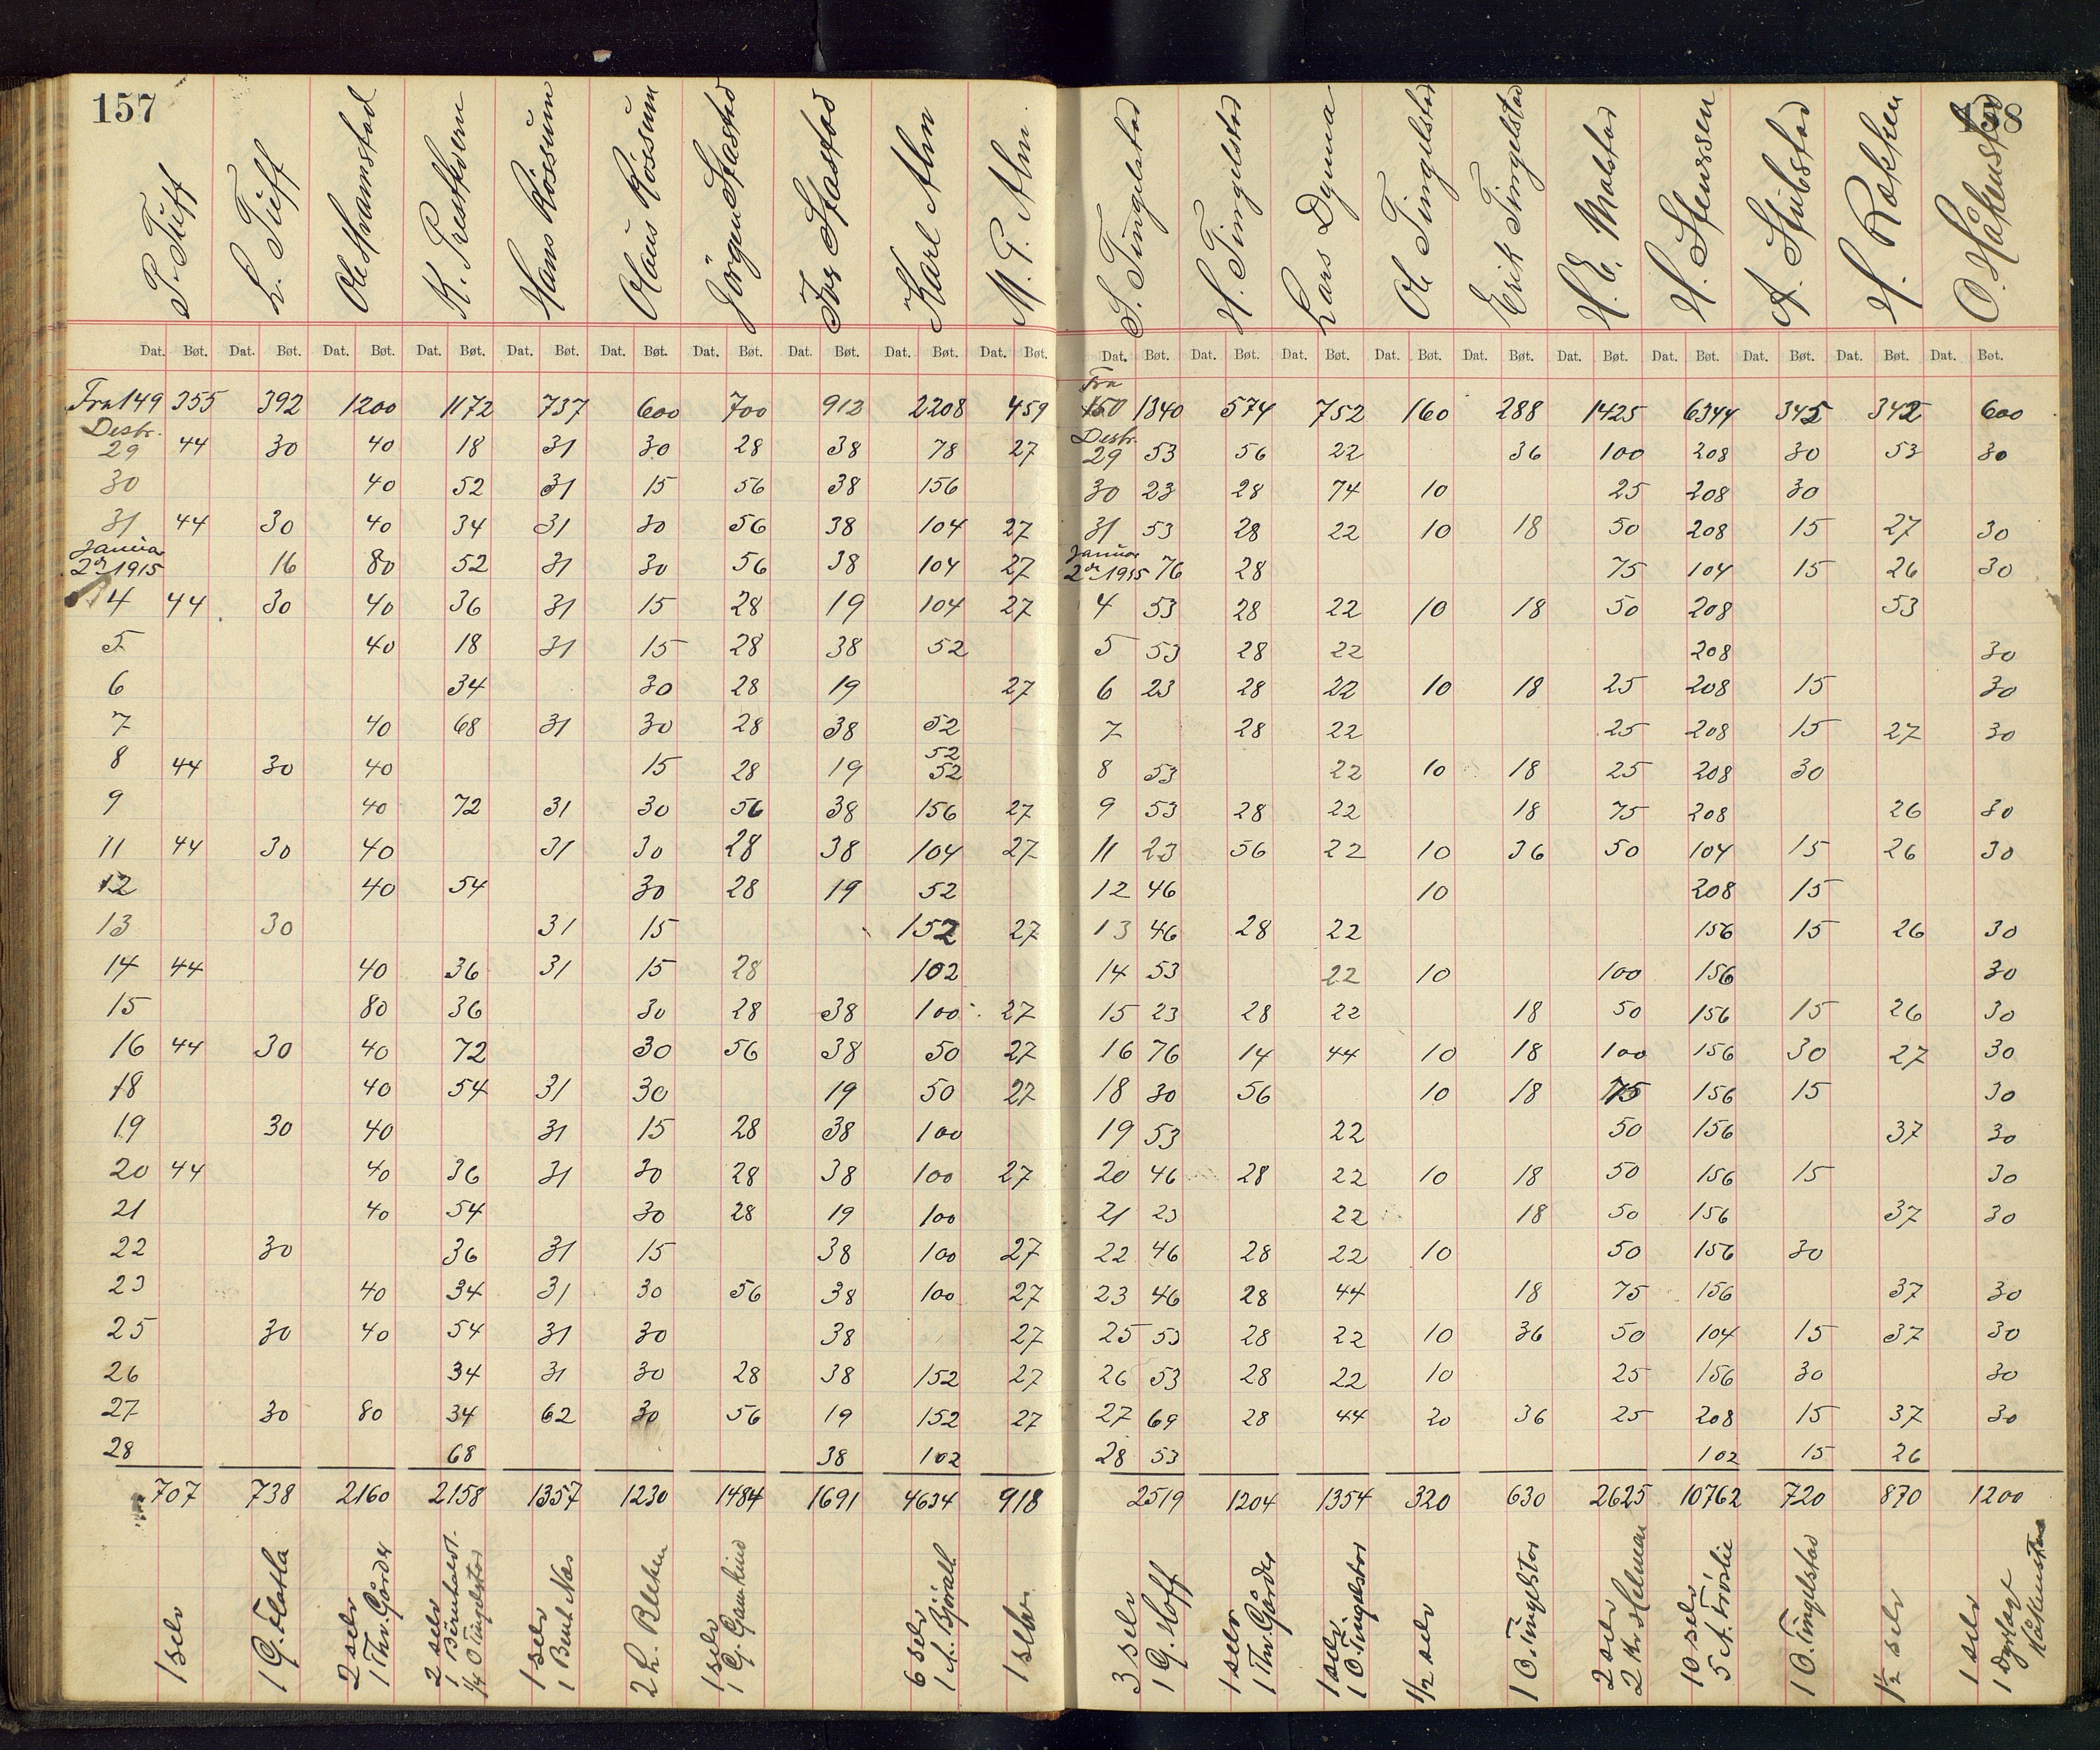 157
P. Tuff | L. Tuff | Ole Hvamstad | K. Prestkvern | Hans Rossum | Olaus Rossum | Jörgen Staxrud | Iver Staxrud | Karl Alm | M. P. Alm
Dat. Bøt. Dat. Bøt. Dat. Bøt. Dat. Bøt. Dat. Bøt. Dat. Bøt. Dat. Bøt. Dat. Bøt. Dat. Bøt. Dat. Bøt.
Fra 149 355 392 1200 1172 737 600 700 912 2208 459
Desbr.
29 44 30 40 18 31 30 28 38 78 27
30 40 52 31 15 56 38 156
31 44 30 40 34 31 30 56 38 104 27
Januar
2 1915 16 80 52 31 30 56 38 104 27
4 44 30 40 36 31 15 28 19 104 27
5 40 18 31 15 28 38 52
6 34 30 28 19 27
7 40 68 31 30 28 38 52
52
8 44 30 40 15 28 19 52
9 40 72 31 30 56 38 156 27
11 44 30 40 31 30 28 38 104 27
12 40 54 30 28 19 52
13 30 31 15 152 27
14 44 40 36 31 15 28 102
15 80 36 30 28 38 100 27
16 44 30 40 72 30 56 38 50 27
18 40 54 31 30 19 50 27
19 30 40 31 15 28 38 100
20 44 40 36 31 30 28 38 100 27
21 40 54 30 28 19 100
22 30 36 31 15 38 100 27
23 40 34 31 30 56 38 100 27
25 30 40 54 31 30 38 27
26 34 31 30 28 38 152 27
27 30 80 34 62 30 56 19 152 27
28 68 38 102
707 738 2160 2158 1357 1230 1484 1691 4634 918
1 selv
1 G. Flatla
2 selv
1 Thv. Gårder
2 selv
1
1/4 O Tingelstad
1 selv
1 Bent Næs
2 L.
1 selv
1 G.
6 selv
1 A. Björalt
1 selv
158
S. Tingelstad | H. Tingelstad | Lars Dynna | Ole Tingelstad | Erik Tingelstad | H. E. Molstad | H. Stenssen | A. Stubstad | H. Rækken | O. Håkenstad
Dat. Bøt. Dat. Bøt. Dat. Bøt. Dat. Bøt. Dat. Bøt. Dat. Bøt. Dat. Bøt. Dat. Bøt. Dat. Bøt. Dat. Bøt.
Fra
150 1340 574 752 160 288 1425 6344 345 342 600
Desbr.
29 53 56 22 36 100 208 30 53 30
30 23 28 74 10 25 208 30
31 53 28 22 10 18 50 208 15 27 30
Januar
2 1915 76 28 75 104 15 26 30
4 53 28 22 10 18 50 208 53
5 53 28 22 208 30
6 23 28 22 10 18 25 208 15 30
7 28 22 25 208 15 27 30
8 53 22 10 18 25 208 30
9 53 28 22 18 75 208 26 30
11 23 56 22 10 36 50 104 15 26 30
12 46 10 208 15
13 46 28 22 156 15 26 30
14 53 22 10 100 156 30
15 23 28 22 18 50 156 15 26 30
16 76 14 44 10 18 100 156 30 27 30
18 30 56 10 18 75 156 15 30
19 53 22 50 156 37 30
20 46 28 22 10 18 50 156 15 30
21 23 22 18 50 156 37 30
22 46 28 22 10 50 156 30
23 46 28 44 18 75 156 37 30
25 53 28 22 10 36 50 104 15 37 30
26 53 28 22 10 25 156 30 30
27 69 28 44 20 36 25 208 15 37 30
28 53 102 15 26
2519 1204 1354 320 630 2625 10762 720 870 1200
3 selv
1 G. Hoff
1 selv
1 Thv. Gårder
1 selv
1 O. Tingelstad
1/2 selv
1 O. Tingelstad
2 selv
2 Kr. Helmen
10 selv
5 A. Froslie
1 O. Tingelstad
1 1/2 selv
1 selv
1 Håkenstad